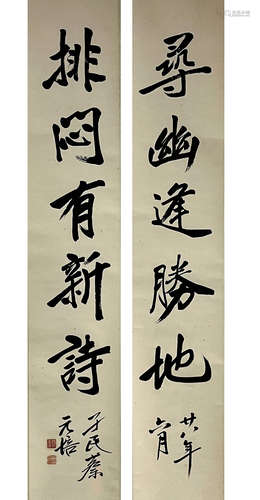 尋幽逢勝地
廿八年
六月
排悶有新詩
孑民蔡
元培